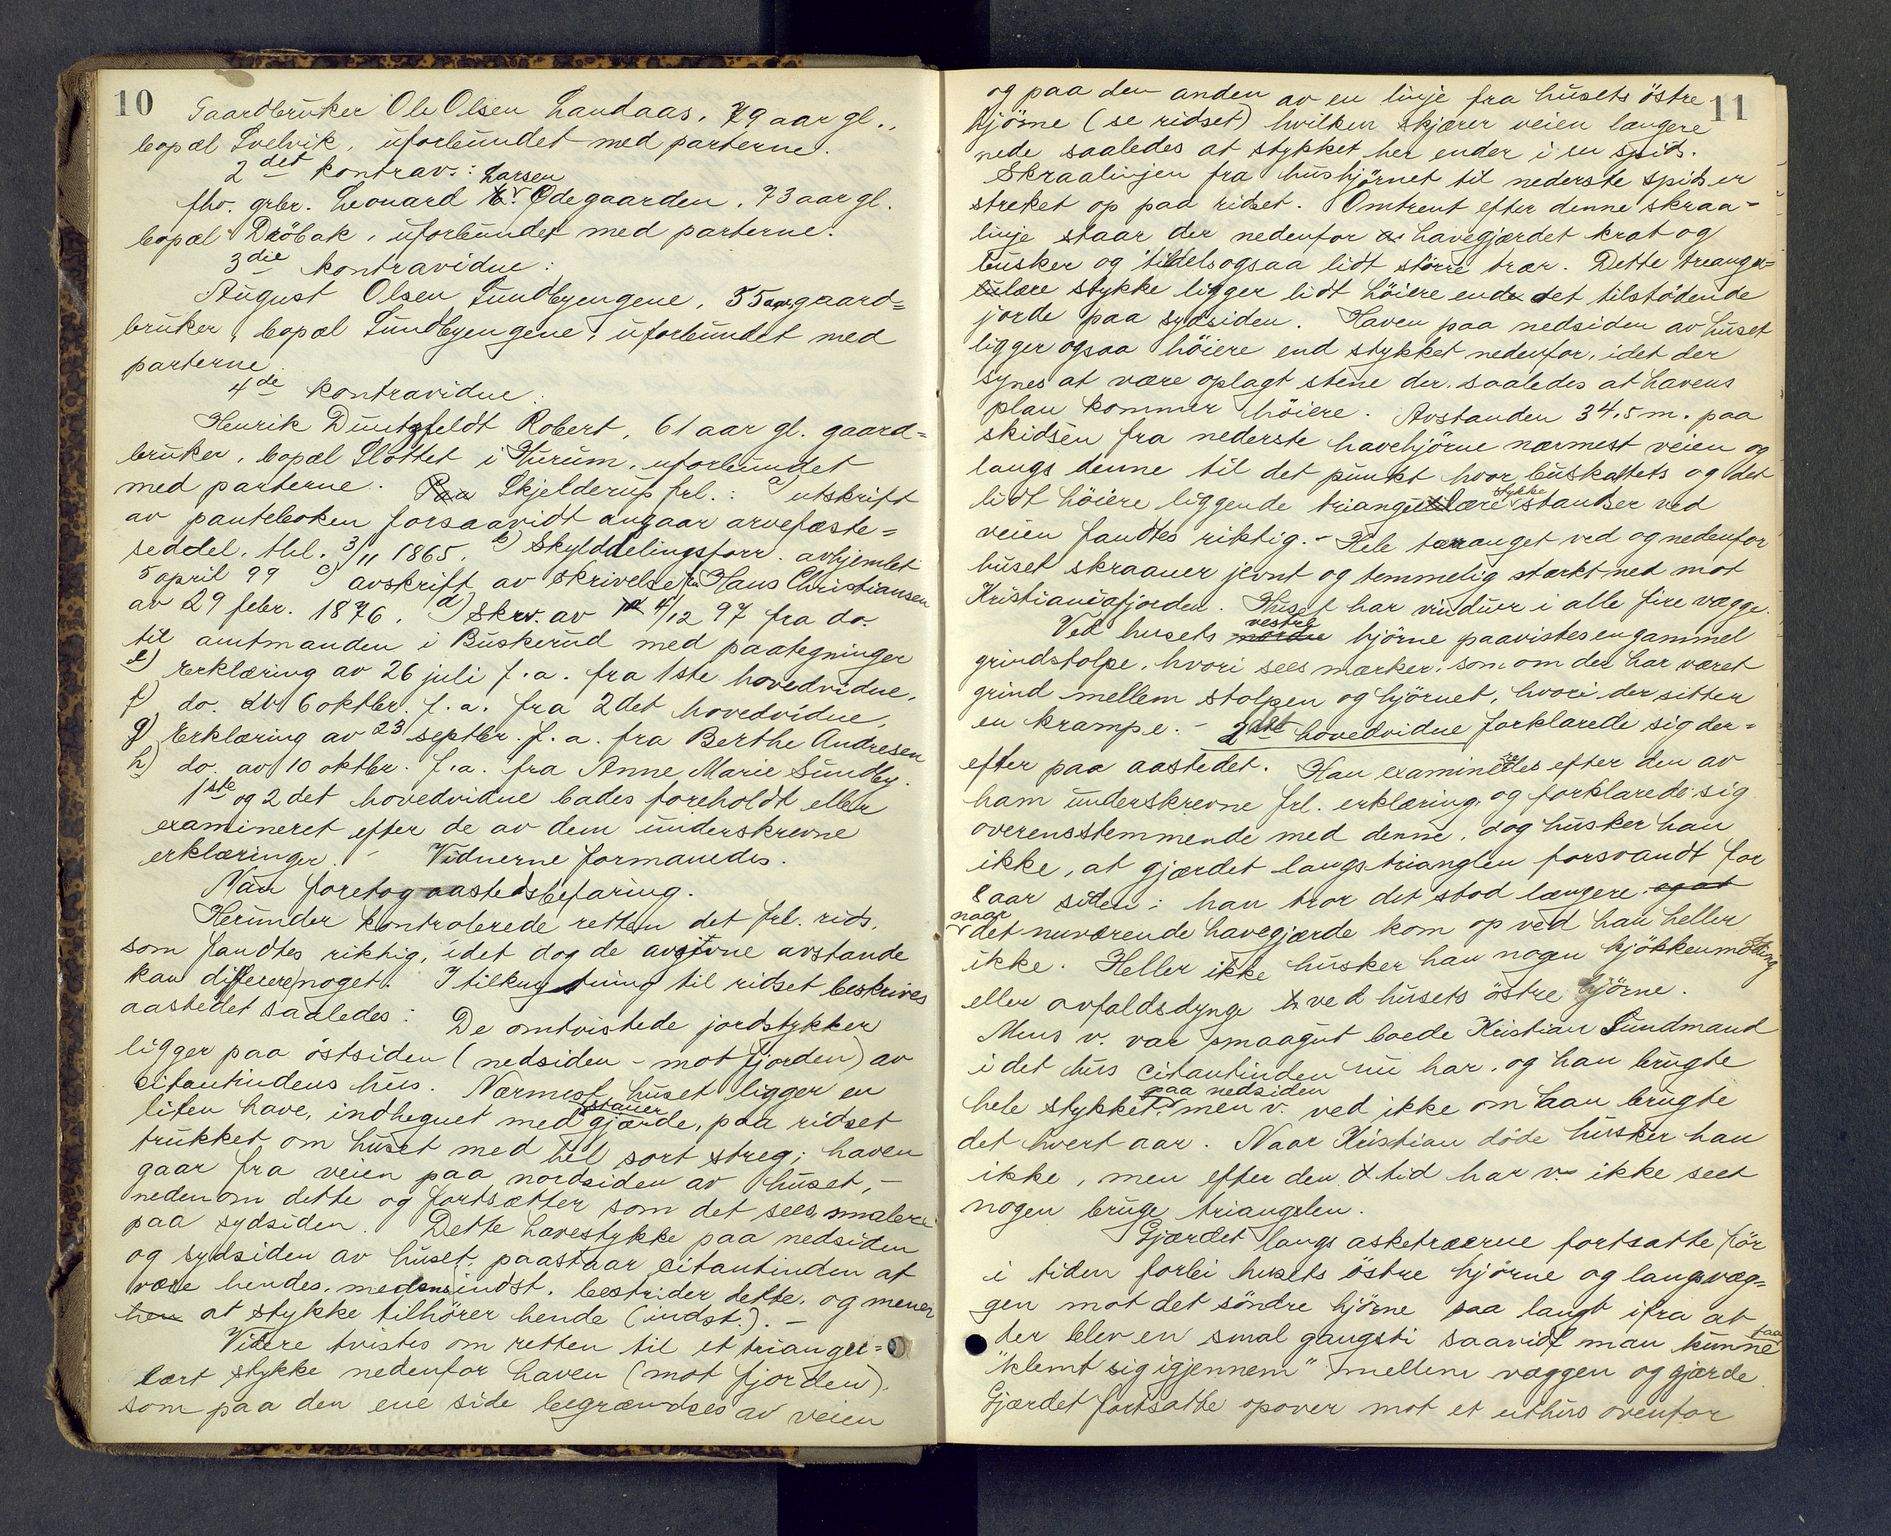 10
Gaardbruker Ole Olsen Landaas, 79 aar gl.,
bopæl Svelvik, uforbundet med parterne.
2det kontrav.: Larsen
fhv. grbr. Leonard Ødegaarden, 73 aar gl.
bopæl Drøbak, uforbundet med parterne.
3die kontravidne:
August Olsen Sundbyengene, 55 aar, gaard=
bruker, bopæl Sundbyengene, uforbundet med
parterne.
4de kontravidne:
Henrik Duntzfeldt Robert, 61 aar gl. gaard=
bruker, bopæl Slottet i Hurum, uforbundet
med parterne. Paa Skjelderup frl.: a) utskrift
av panteboken forsaavidt angaar arvefæste=
seddel, thl. 3/11 1865, b) Skylddelingsforr. avhjemlet
5 april 99 c) avskrift av skrivelse fra Hans Christiansen
av 29 febr. 1876, d) Skrv. av 4/12 97 fra do.
til amtmanden i Buskerud med paategninger
e) Erklæring av 26 juli f.a. fra 1ste hovedvidne,
f) do. av 6 oktbr. f.a. fra 2det hovedvidne,
g) Erklæring av 23 septbr. f.a. fra Berthe Andresen
h) do. av 10 oktbr. f.a. fra Anne Marie Sundby.
1ste og 2det hovedvidne bades foreholdt eller
examineret efter de av dem underskrevne
erklæringer. - Vidnerne formanedes.
Man foretog aastedsbefaring.
Herunder kontrolerede retten det frl. rids,
som fandtes riktig, idet dog de avgivne avstande
kan differere noget. I tilknytning til ridset beskrives
aastedet saaledes: De omtvistede jordstykker
ligger paa østsiden (nedsiden - mot fjorden) av
citantindens hus. Nærmest huset ligger en
liten have, indhegnet med stauer gjærde, paa ridset
trukket om huset med hel sort streg; haven
gaar fra veien paa nordsiden av huset, -
nedenom dette og fortsætter som det sees smalere
paa sydsiden. Dette havestykke paa nedsiden
og sydsiden av huset, paastaar citantinden at
være hendes, medens indst. bestrider dette, og mener
hen at stykke tilhører hende (indst.). -
Videre tvistes om retten til et triangu=
lært stykke nedenfor haven (mot fjorden),
som paa den ene side begrændses av veien
11
og paa den anden av en linje fra husets østre
hjørne (se ridset) hvilken skjærer veien længere
nede saaledes at stykket her ender i en spids.
Skraalinjen fra hushjørnet til nederste spids er
streket op paa ridset. Omtrent efter denne skraa=
linje staar der nedenfor havegjærdet krat og
busker og tildels ogsaa lidt større trær. Dette triangu=
lære stykke ligger lidt höiere end det tilstødende
jorde paa sydsiden. Haven paa nedsiden av huset
ligger ogsaa höiere end stykket nedenfor, idet der
synes at være oplagt stene der, saaledes at havens
plan kommer höiere. Avstanden 34,5 m. paa
skidsen fra nederste havehjørne nærmest veien og
langs denne til det punkt hvor buskattets og det
lidt höiere liggende triangulære stykke standser ved
veien fandtes riktig. - Hele terranget ved og nedenfor
huset skraaner jevnt og temmelig stærkt ned mot
Kristianiafjorden. Huset har vinduer i alle fire vægge.
Ved husets nordre vestre hjørne paavistes en gammel
grindstolpe, hvori sees mærker som om der har været
grind mellem stolpen og hjørnet, hvori der sitter
en krampe. - 2det hovedvidne forklarede sig der=
efter paa aastedet. Han examineredes efter den av
ham underskrevne frl. erklæring, og forklarede sig
overensstemmende med denne, dog husker han
ikke, at gjærdet langs trianglen forsvandt for
8 aar siden; han tror det stod længere, og at
naar det nuværende havegjærde kom op ved han heller
ikke. Heller ikke husker han nogen kjøkkenmødding
eller avfaldsdynge ved husets østre hjørne.
Mens v. var smaagut boede Kristian Sundmand
i det hus citantinden nu har, og han brugte
hele stykket paa nedsiden, men v. ved ikke om han brugte
det hvert aar. Naar Kristian døde husker han
ikke, men efter den tid har v. ikke seet
nogen bruge trianglen.
Gjærdet langs asketrærne fortsatte før
i tiden forbi husets østre hjørne og langs væg=
gen mot det søndre hjørne saa langt ifra at
der blev en smal gangsti saavidt man kunne faa
"klemt sig igjennem" mellem væggen og gjærde.
Gjærdet fortsatte opover mot et uthus ovenfor